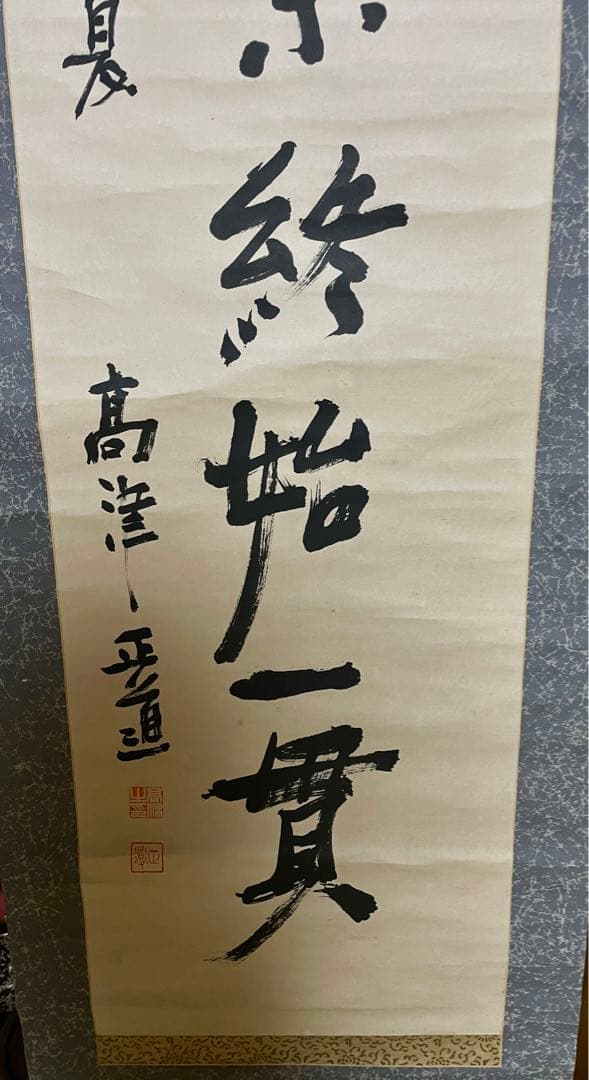 終始一貫
夏
高津正道